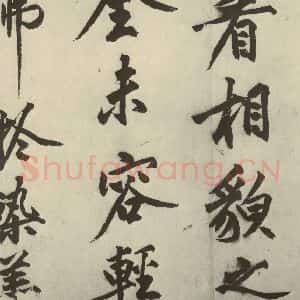 看相貌之
全未容輕
師於染羔
Shufawang.CN